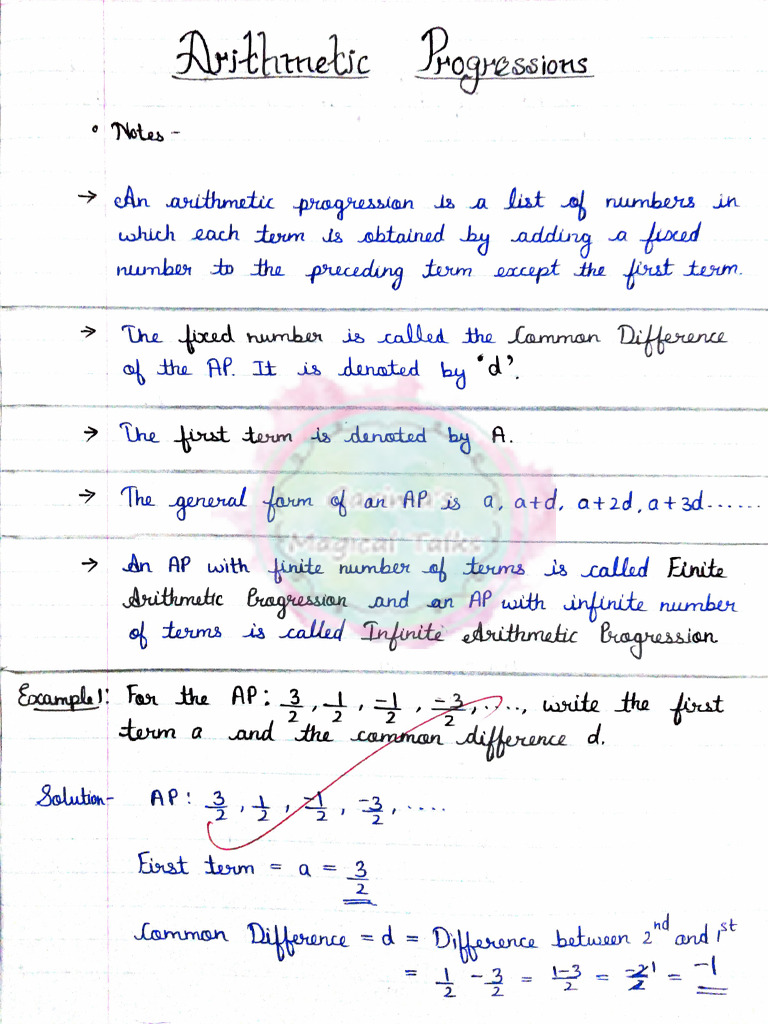 Arithmetic Progressions
• Notes -
→ An arithmetic progression is a list of numbers in
which each term is obtained by adding a fixed
number to the preceding term except the first term.
→ The fixed number is called the Common Difference
of the AP. It is denoted by 'd'.
→ The first term is denoted by A.
→ The general form of an AP is a, a+d, a+2d, a+3d......
Magical Talks
→ An AP with finite number of terms is called Finite
Arithmetic Progression and an AP with infinite number
of terms is called Infinite Arithmetic Progression
Example 1: For the AP: 3/2, 1/2, -1/2, -3/2, ...., write the first
term a and the common difference d.
Solution- AP: 3/2, 1/2, -1/2, -3/2, ....
First term = a = 3/2
Common Difference = d = Difference between 2nd and 1st
= 1/2 - 3/2 = 1-3/2 = -2/2 1 = -1